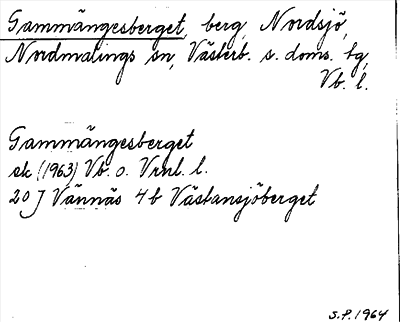 Gammängesberget, berg, Nordsjö,
Nordmalings sn, Västerb. s. doms. tg,
Vb. l.
Gammängesberget
sk (1963) Vb. o. Vrml. l.
20 J Vännäs 4b Västansjöberget
S.P. 1964